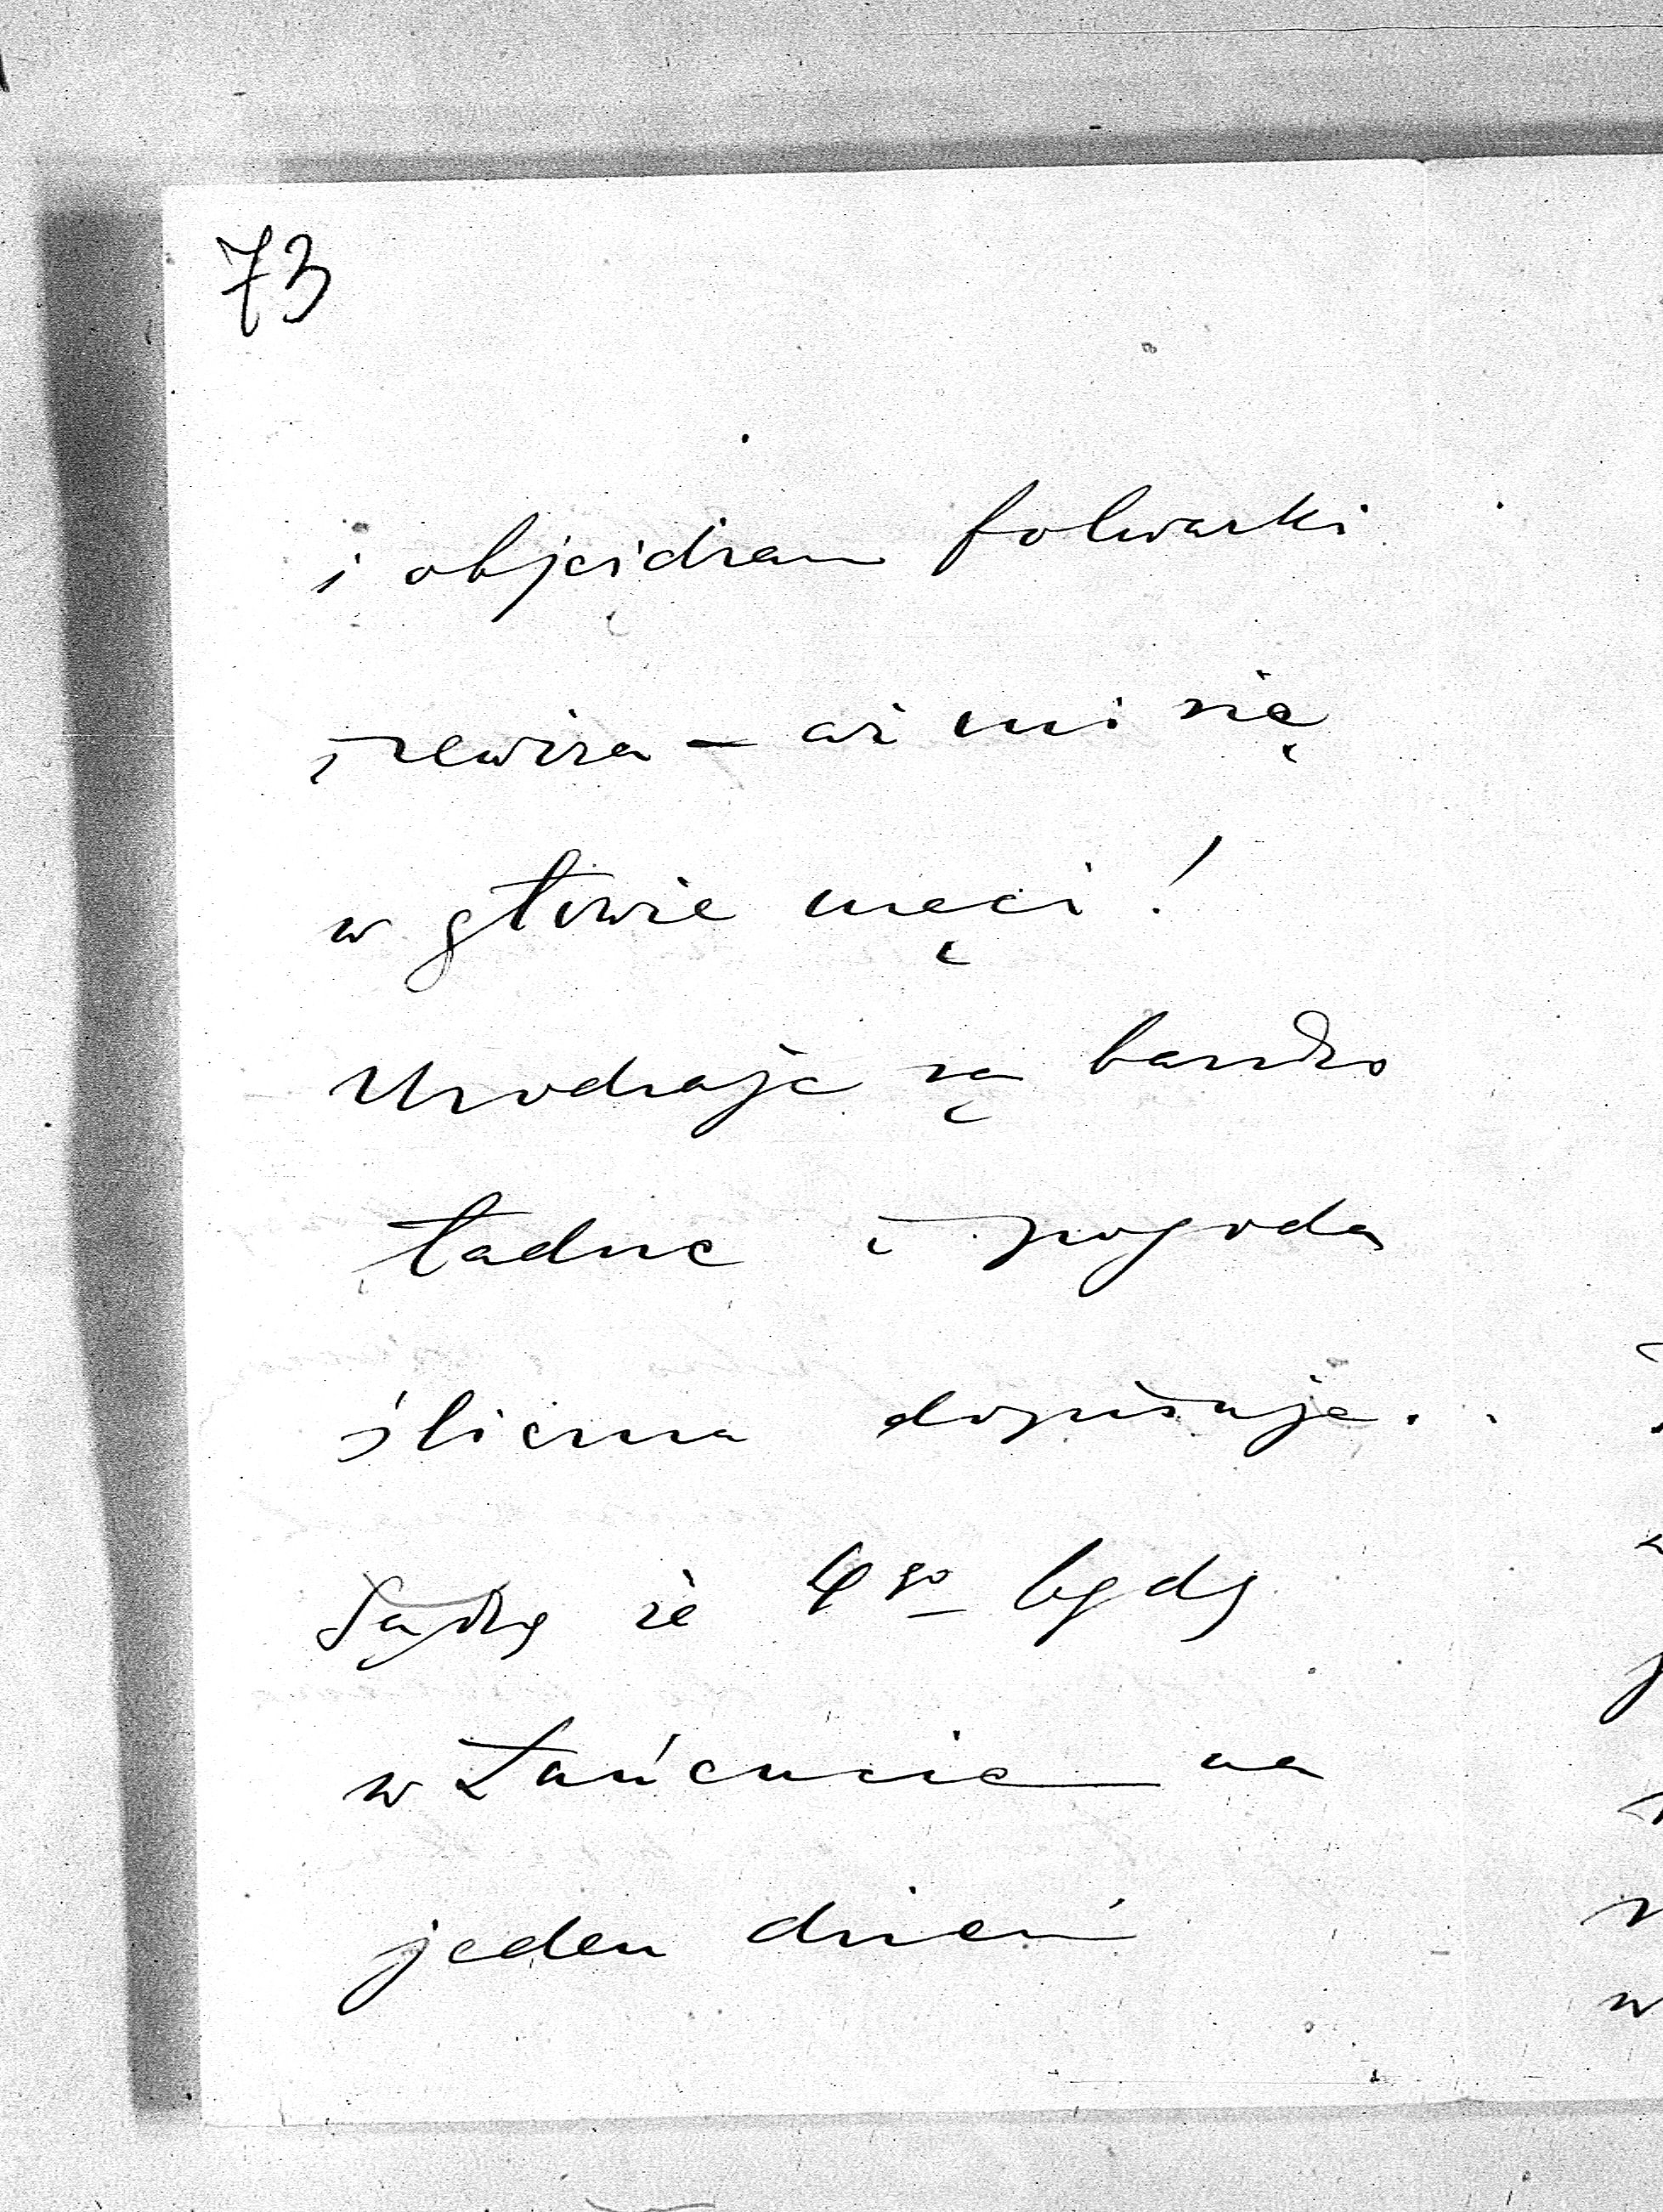 73
i objeżdżam folwarki
i rewira — aż mi się
w głowie męci!
Urodzaje są bardzo
ładne i pogoda
śliczna dopisuje.
Sądzę że 4go będę
w Łańcucie na
jeden dzień